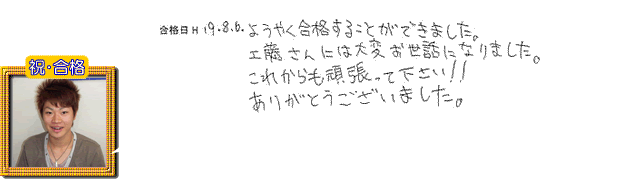 合格日 H 19.8.6. ようやく合格することができました。
工藤さんには大変お世話になりました。
これからも頑張って下さい!!
ありがとうございました。
祝・合格